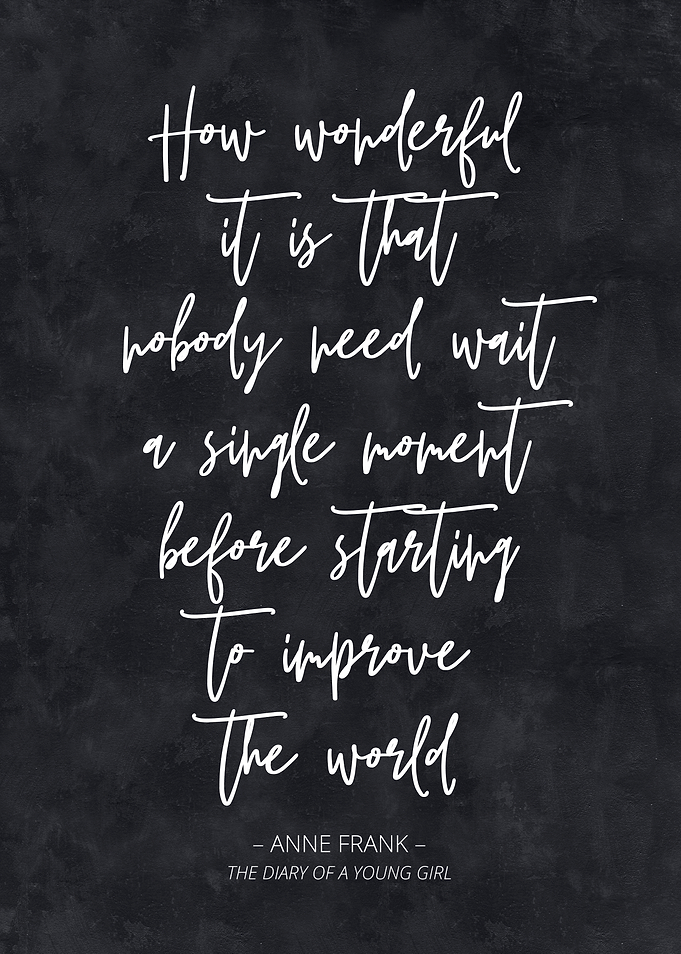 How wonderful
it is that
nobody need wait
a single moment
before starting
to improve
the world
– ANNE FRANK –
THE DIARY OF A YOUNG GIRL